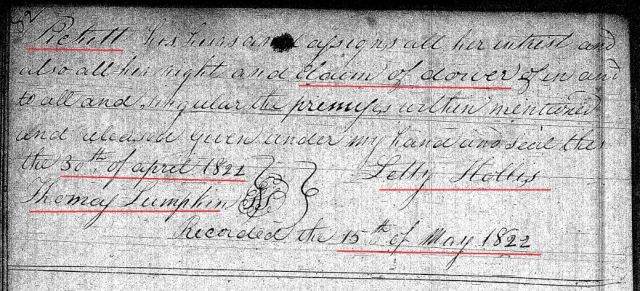 Pickett his heirs and assigns all her intrest and
also all her right and Claim of dower of in and
to all and singular the premises within mentioned
and released given under my hand and seal this
the 30th of april 1822
Letty Hollis
Thomas Lumpkin
Recorded the 15th of May 1822